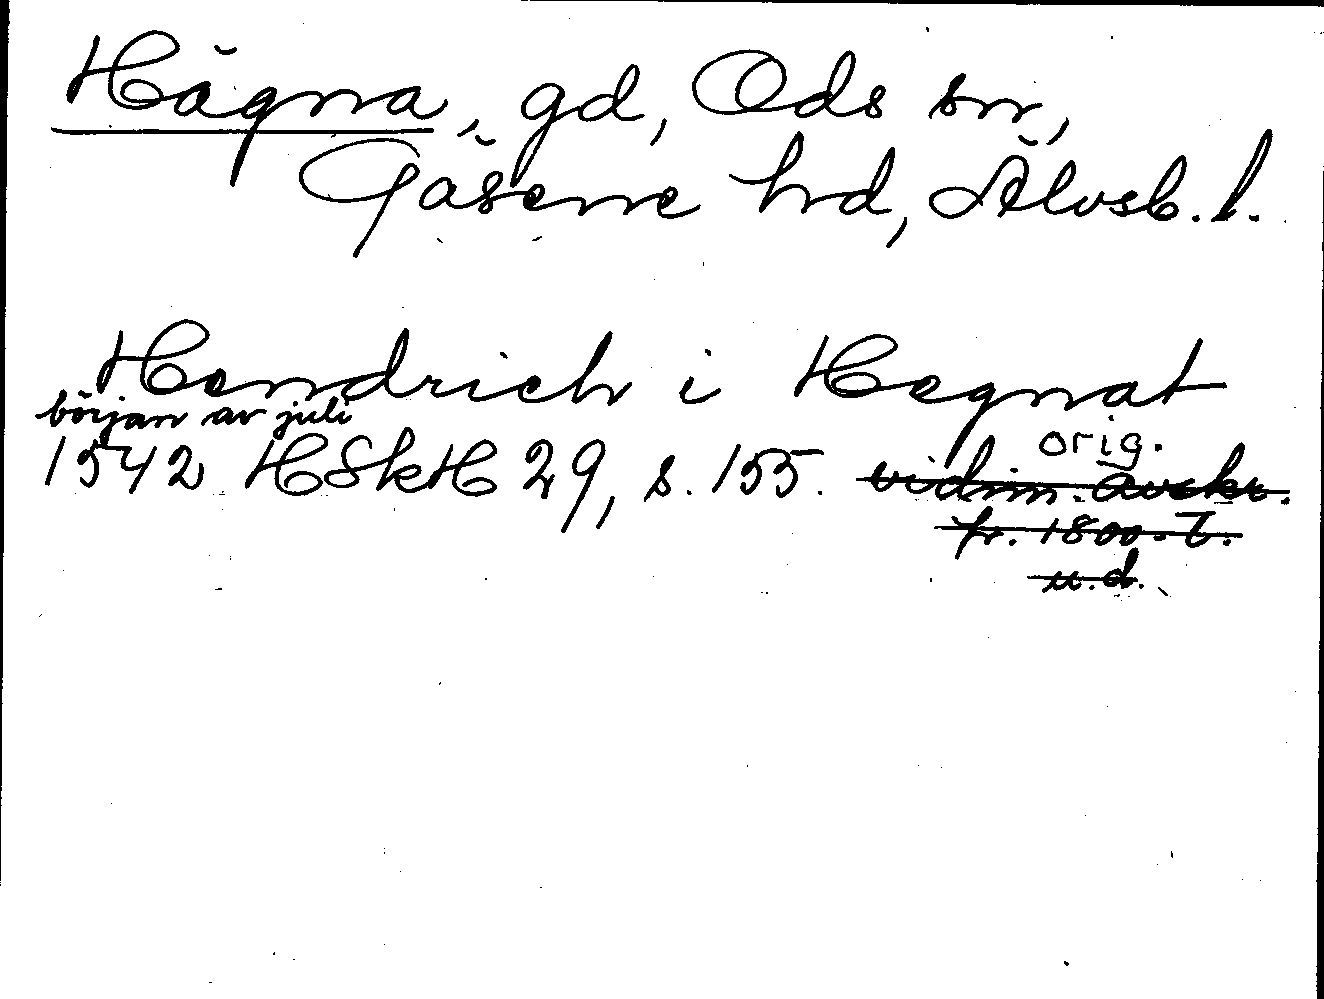 Hägna, gd, Ods sn,
Gäsene hd, Älvsb. l.
Hendrich i Hegnat
början av juli
orig.
1542 HSkH 29, s. 155. vidim. avskr.
fr. 1800-t.
u.d.